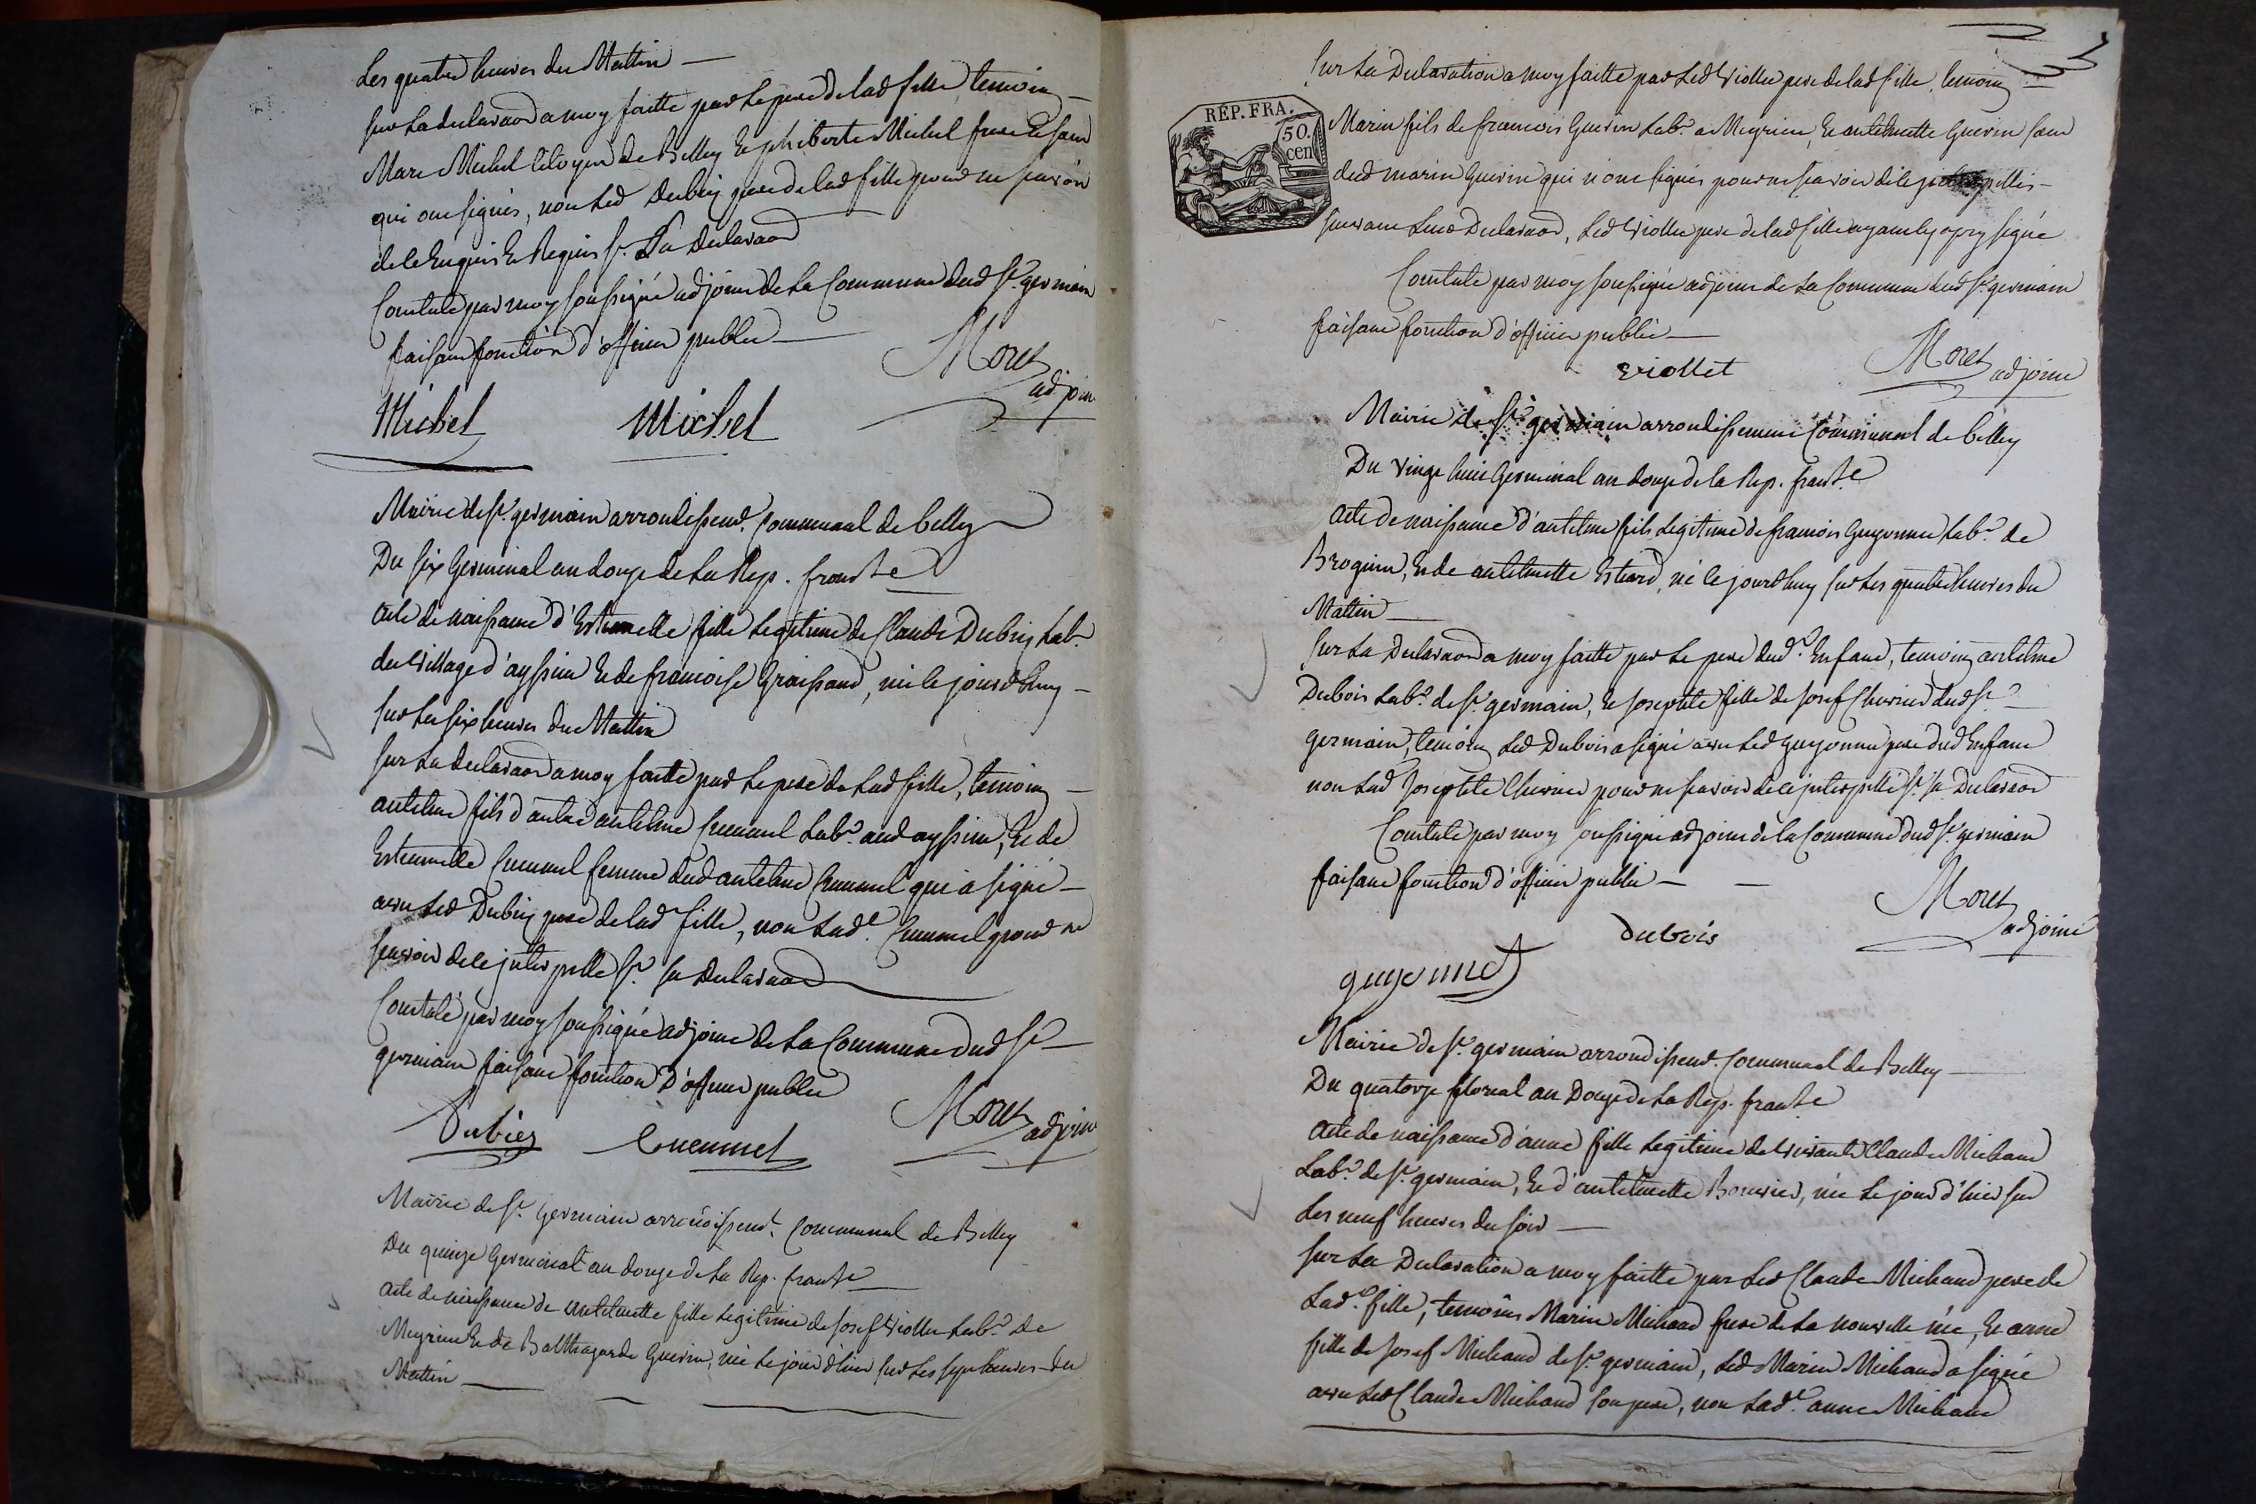 Les quatre heures du Mattin —
sur La declaraon a moy faitte par Le pere de lad fille, temoins —
Marc Michel Citoyen de Belley Et philiberte Michel frere Et soeur
qui ont signés, non Led Dubiez pere de lad fille pour ne scavoir
de le Enquis Et Requis St. Sa declaraon
Constaté par moy soussigné adjoint de La Commune dud St. germain
faisant fonction d'officier public —
Moret
adjoint
Michel Michel
Mairie de St. germain arrondissemt. Communal de belley
Du six Germinal an douze de La Rep. franse
acte de naissance d'Estiennette fille Legitime de Claude Dubiez Labr.
du village d'ayssieu Et de francoise Graissard, née le jourdhuy —
sur Les six heures du Mattin
sur La declaraon a moy faitte par Le pere de Lad fille, temoins —
antelme fils d'autre antelme Cuennet Labr. aud ayssieu, Et de
Estiennette Cuennet femme dud antelme Cuennet qui a signé —
avec Led Dubiez pere de lad fille, non Lade. Cuennet pour ne
scavoir de ce interpellé St. sa declaraon
Constaté par moy soussigné adjoint de La Commune dud St —
germain faisant fonction D'officier public
Moret
adjoint
Dubiez Cuennet
Mairie de St. Germain arrondissemt. Communal de Belley
Du quinze Germinal an douze de La Rep. franse
acte de naissance de antelmette fille Legitime de Josef Viollet Labr. de
Meyrieu Et de Balthazarde Guerin, née Le jour d'hier sur Les sept heures du
Mattin —
sur La Declaration a moy faitte par Led Viollet pere de lad fille, temoins
RÉP. FRA.
50.
cen
Marin fils de francois Guerin Labr. a Meyrieu, Et antelmette Guerin soeur
dud marin Guerin qui n'ont signés pour ne scavoir de ce
suivant Leur Declaraon, Led Viollet pere de lad fille ayant signé
Constaté par moy soussigné adjoint de La Commune dud St. germain
faisant fonction d'officier public —
viollet
Moret
adjoint
Mairie de St. germain arrondissement Communal de belley
Du vingt huit Germinal an douze de la Rep. franse
acte de naissance d'antelme fils Legitime de francois Guyonnet Labr. de
Brognin, Et de antelmette Estiard, né le jourdhuy sur Les quatre heures du
Mattin —
sur La Declaraon a moy faitte par Le pere dud. Enfant, temoins antelme
Dubois Labr. de St. germain, Et Josephte fille de Josef Chervier dud St.
germain, temoins Led Dubois a signé avec Led Guyonnet pere dud Enfant
non Lad Josephte Chervier pour ne scavoir de ce interpellé St. sa Declaraon
Constaté par moy soussigné adjoint de la Commune dud St. germain
faisant fonction d'officier public —
Moret
adjoint
dubois
guyonnet
Mairie de St. germain arrondissemt. Communal de Belley —
Du quatorze floreal an Douze de La Rep. franse
Acte de naissance d'anne fille Legitime de vivants Claude Michaud
Labr. de St. germain, Et d'antelmette Bouvier, née Le jour d'hier sur
Les neuf heures du soir —
sur La Declaration a moy faitte par Led Claude Michaud pere de
Lade. fille, temoins Marin Michaud frere de La nouvelle née, Et anne
fille de Josef Michaud de St. germain, Led Marin Michaud a signé
avec Led Claude Michaud son pere, non Lade. anne Michaud